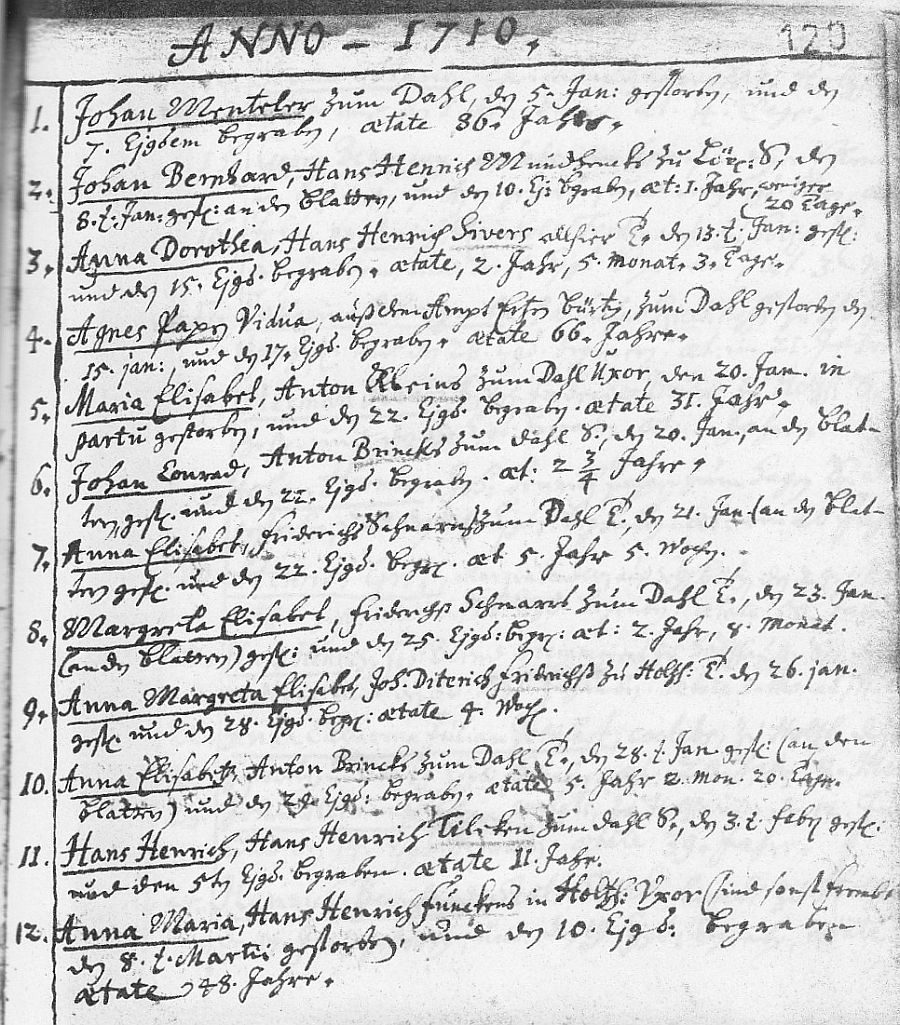 ANNO - 1710. 120
1. Johan Menteler zum Dahl, den 5. Jan: gestorben, und den
7. Ejusdem begraben, ætate 86. Jahr.
2. Johan Bernhard, Hans Henrich zu S. den
8. t. Jan: gest: an den blattern, und den 10. Ej: begraben, æt: 1. Jahr, weniger
20 Tage.
3. Anna Dorothea, Hans Henrich Sivers allhier T. den 13. t. Jan: gest:
und den 15. Ejus. begraben. ætate, 2. Jahr, 5. Monat. 3. Tage.
4. Agnes Papen Vidua, auß dem Ampt bürtig, zum Dahl gestorben den
15. jan:, und den 17. Ejus. begraben. ætate 66. Jahre.
5. Maria Elisabet, Anton Kleins zum Dahl Uxor, den 20. Jan. in
partu gestorben, und den 22. Ejus. begraben. ætate 31. Jahr.
6. Johan Conrad, Anton Brincks zum Dahl S., den 20. Jan., an den blat-
tern gest. und den 22. Ejus. begraben. æt. 2 3/4 Jahre.
7. Anna Elisabet, Friderichs Schnarrs zum Dahl T., den 21. Jan. (an den blat-
tern gest. und den 22. Ejus. begr. æt 5. Jahr 5. Wochen.
8. Margreta Elisabet, Friderichs Schnarrs zum Dahl T., den 23. Jan.
(an den blattern) gest: und den 25. Ejus: begr: æt: 2. Jahr, 8. Monat.
9. Anna Margreta Elisabet, Joh. Diterich Fridrichß zu Holth: T. den 26. jan.
gest. und den 28. Ejus. begr: ætate 4. Woch.
10. Anna Elisabeth, Anton Brincks zum Dahl T., den 28. t. Jan gest: (an den
blattern) und den 29. Ejus: begraben. ætate 5. Jahr 2. Mon. 20. Tage.
11. Hans Henrich, Hans Henrich Tilcken zum dahl S., den 3. t. Feb. gest:
und den 5ten Ejus. begraben. ætate 11. Jahr.
12. Anna Maria, Hans Henrich Funckens in Holth: Uxor (sind sonst frembt
den 8. t. Martii gestorben, und den 10. Ejus: begraben
ætate 48. Jahre.